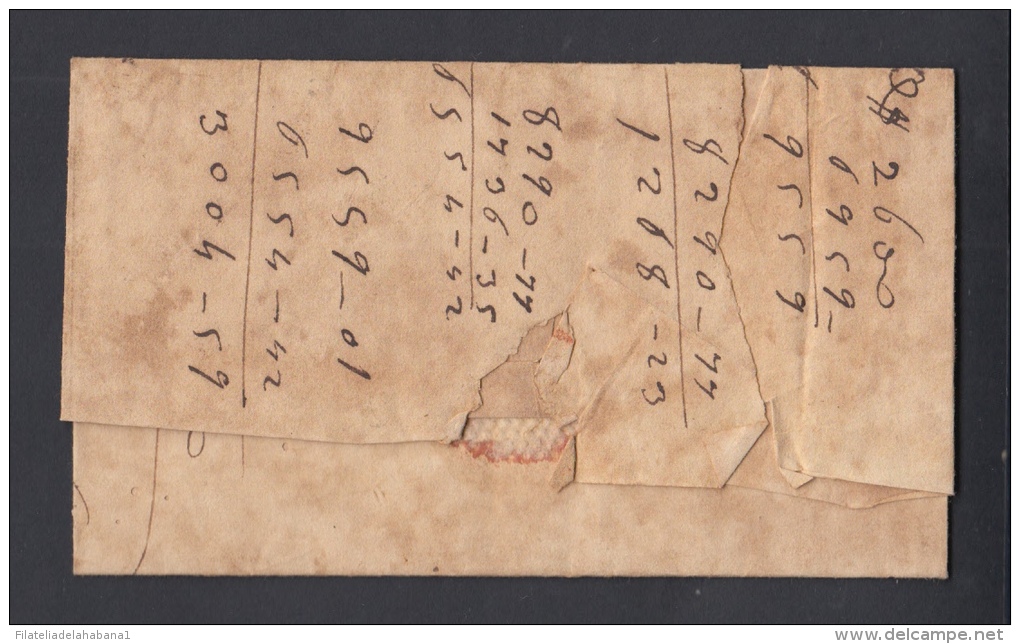 $ 2600
6959=
9559
8290-77
1268-23
8290-77
1736-35
6554-42
9559-01
6554-42
3004-59
Filateliadelahabana1
http://www.delcampe.net